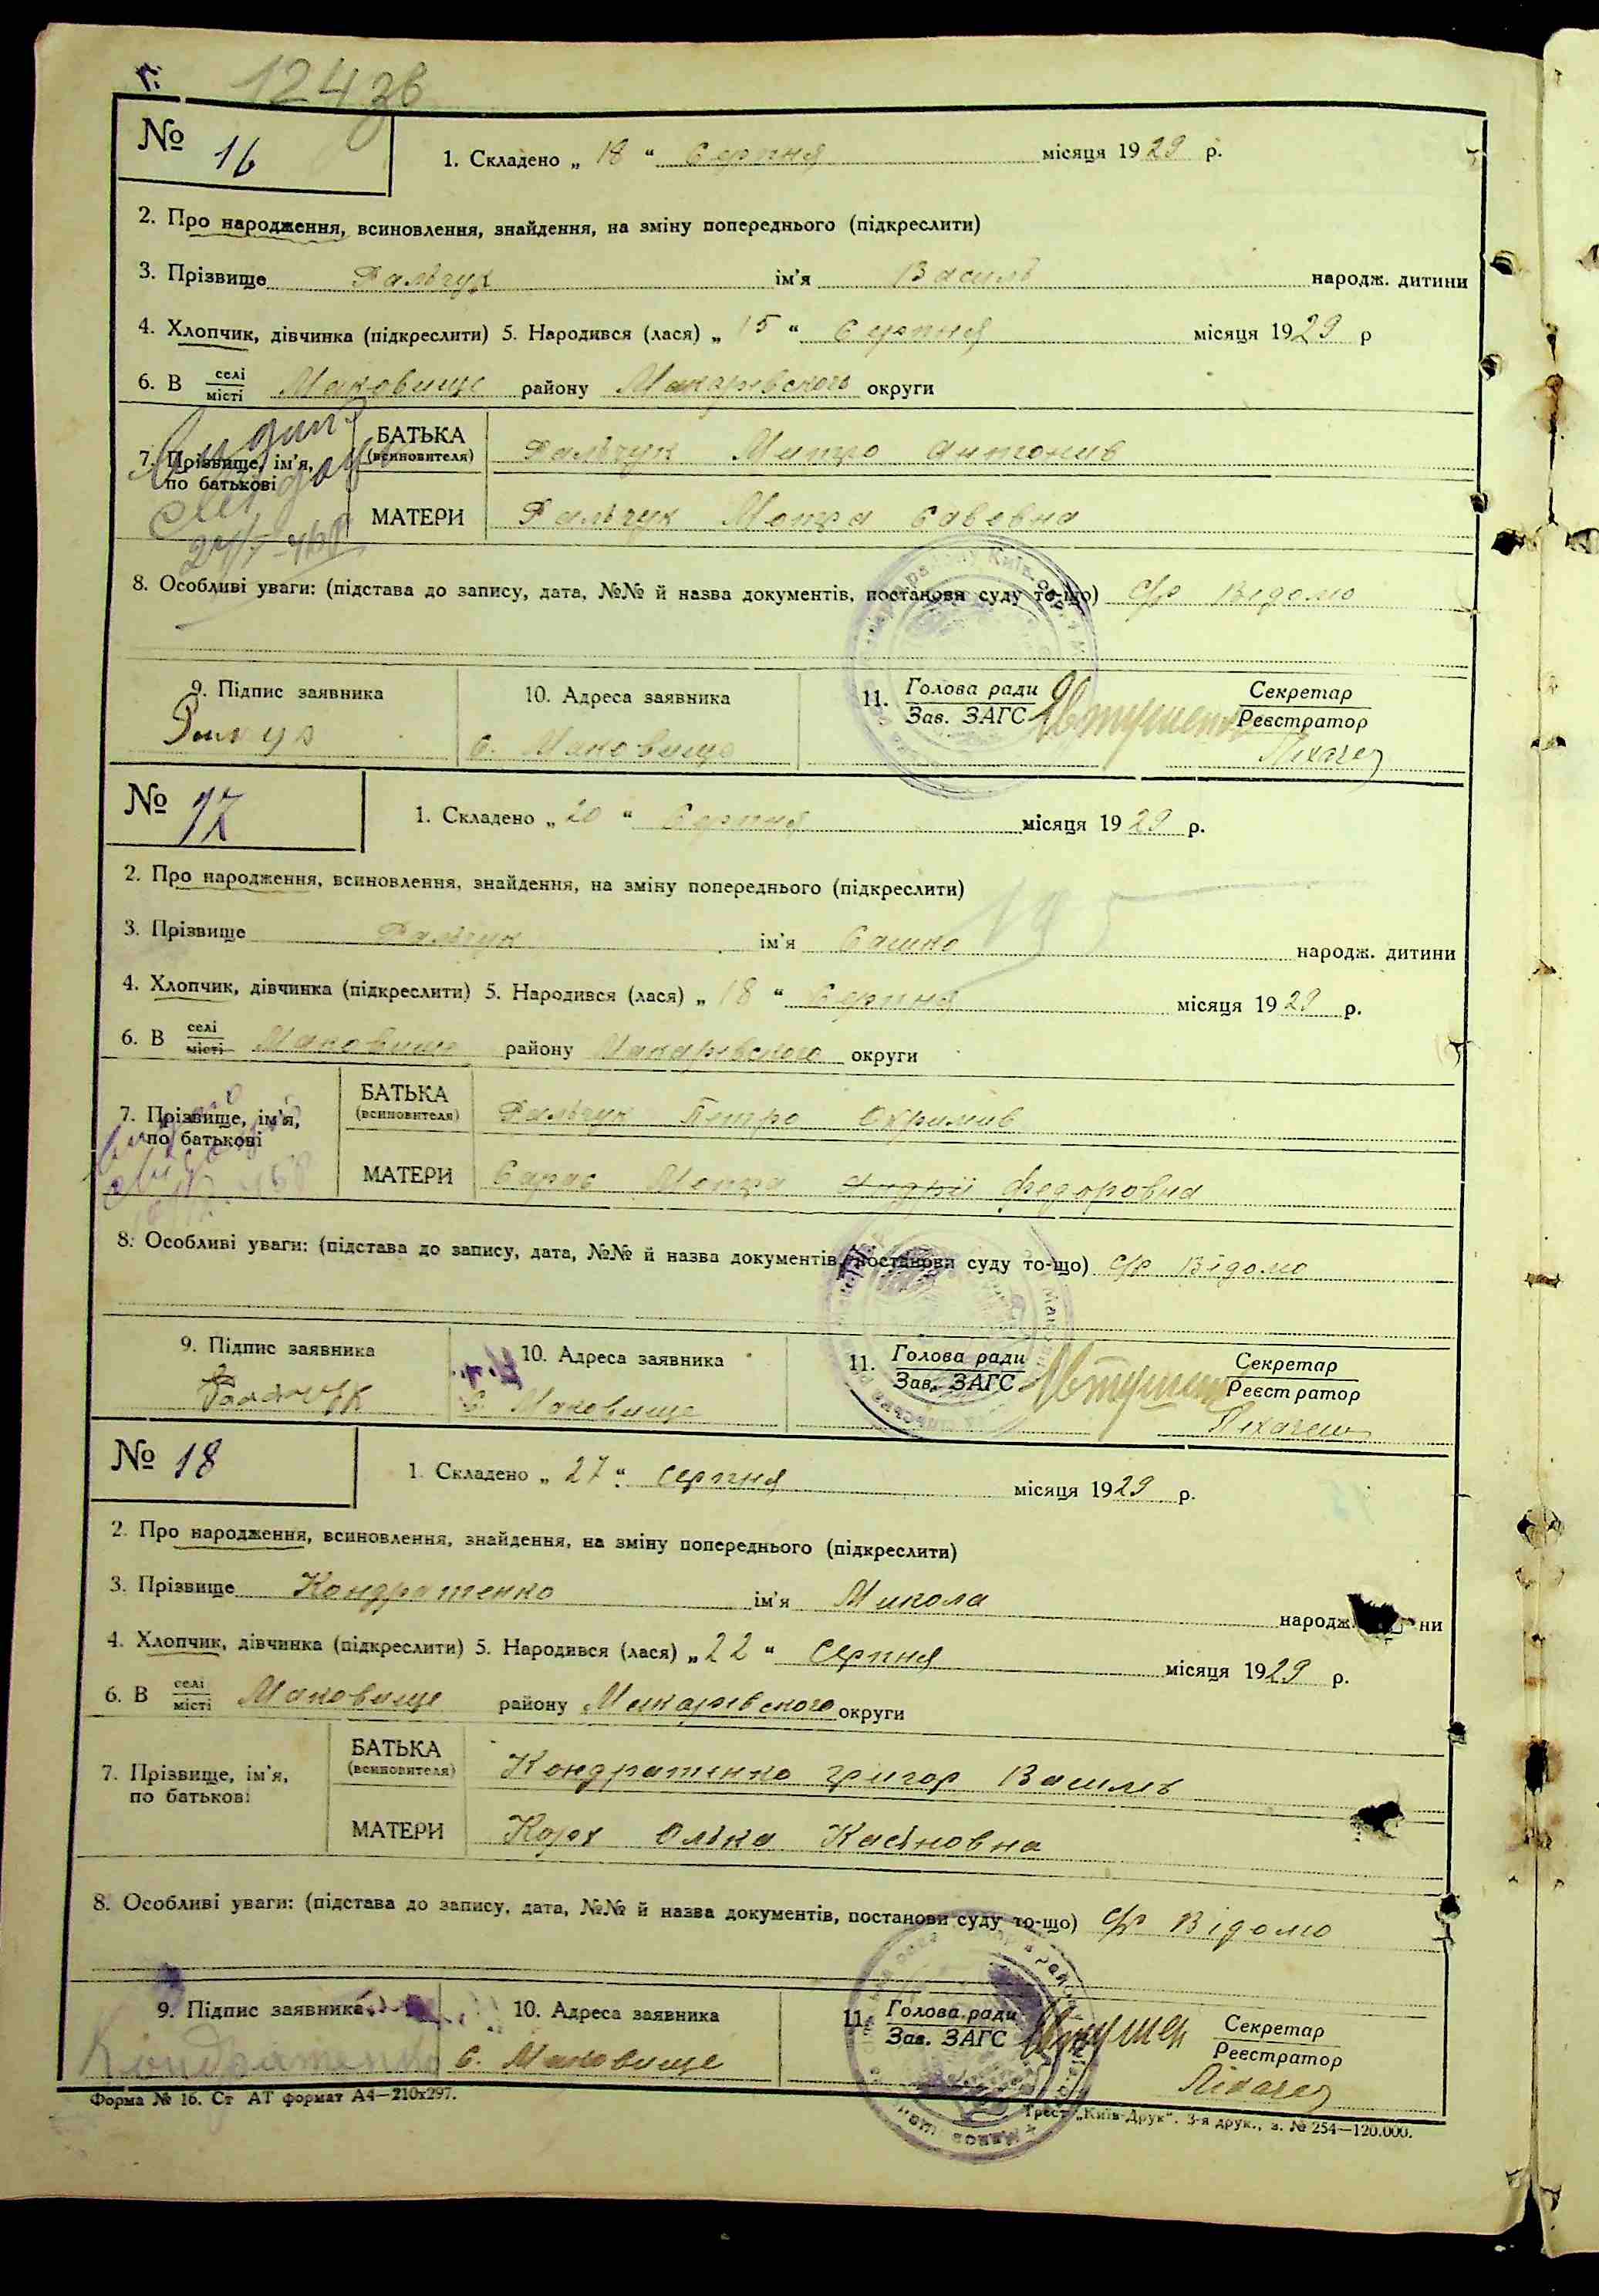 124 зв
№ 16
1. Складено „ 18 “ Серпня місяця 1929 р.
2. Про народження, всиновлення, знайдення, на зміну попереднього (підкреслити)
3. Прізвище Ральчук ім'я Василь народж. дитини
4. Хлопчик, дівчинка (підкреслити) 5. Народився (лася) „ 15 “ Серпня місяця 1929 р
6. В селі місті Маковище району Макарівського округи
7. Прізвище, ім'я, по батькові
БАТЬКА (всиновителя) Ральчук Митро Антонив
МАТЕРИ Ральчук Мотра Савовна
8. Особливі уваги: (підстава до запису, дата, №№ й назва документів, постанови суду то-що) с/р Відомо
9. Підпис заявника
10. Адреса заявника
11. Голова ради Зав. ЗАГС
Секретар Реєстратор
с. Маковище
№ 17
1. Складено „ 20 “ Серпня місяця 1929 р.
2. Про народження, всиновлення, знайдення, на зміну попереднього (підкреслити)
195
3. Прізвище Ральчук ім'я Сашко народж. дитини
4. Хлопчик, дівчинка (підкреслити) 5. Народився (лася) „ 18 “ Серпня місяця 1929 р.
6. В селі місті Маковище району Макарівського округи
7. Прізвище, ім'я, по батькові
БАТЬКА (всиновителя) Ральчук Петро Охримив
МАТЕРИ Мотра Андрії Федоровна
8. Особливі уваги: (підстава до запису, дата, №№ й назва документів, постанови суду то-що) с/р Відомо
9. Підпис заявника
10. Адреса заявника
11. Голова ради Зав. ЗАГС
Секретар Реєстратор
с. Маковище
№ 18
1. Складено „ 27 “ серпня місяця 1929 р.
2. Про народження, всиновлення, знайдення, на зміну попереднього (підкреслити)
3. Прізвище Кондратенко ім'я Микола народж. ни
4. Хлопчик, дівчинка (підкреслити) 5. Народився (лася) „ 22 “ Серпня місяця 1929 р.
6. В селі місті Маковище району Макарівського округи
7. Прізвище, ім'я, по батькові
БАТЬКА (всиновителя) Кондратенко Григор Василь
МАТЕРИ Корх Олька Касяновна
8. Особливі уваги: (підстава до запису, дата, №№ й назва документів, постанови суду то-що) с/р Відомо
9. Підпис заявника
10. Адреса заявника
11. Голова ради Зав. ЗАГС
Секретар Реєстратор
Кондратенко
с. Маковище
Форма № 16. Ст АТ формат А4—210х297.
Трест „Київ-Друк“. 3-я друк., з. № 254—120.000.